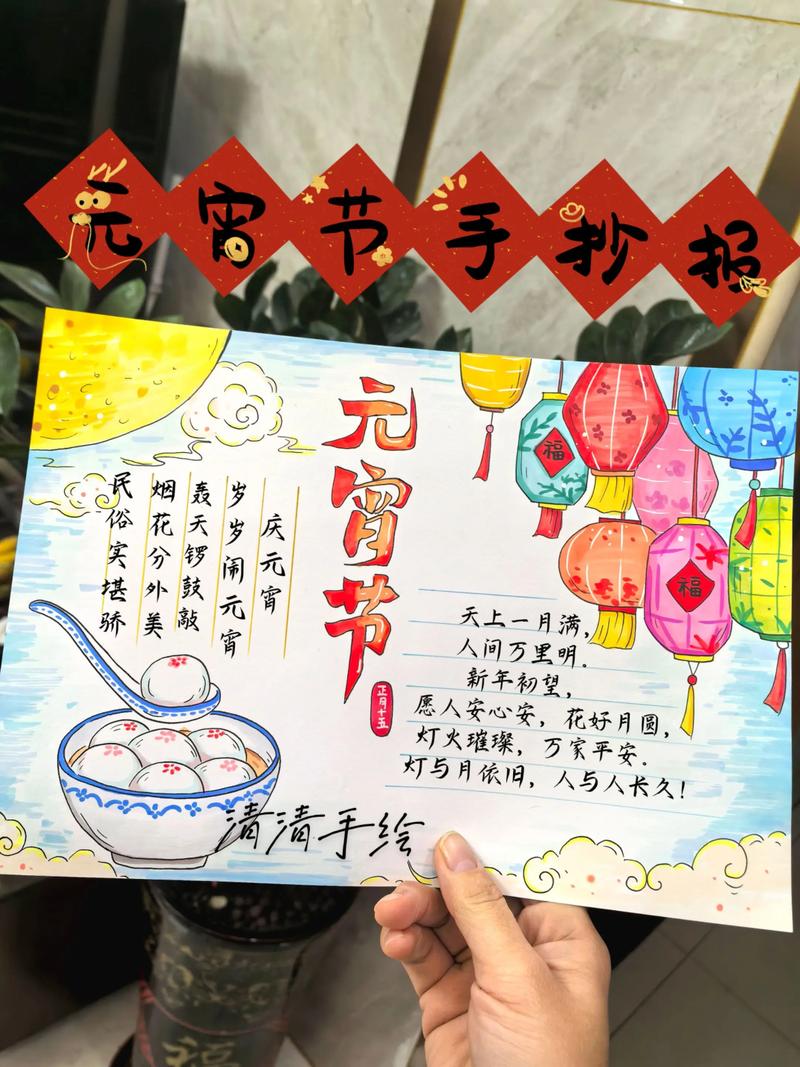 元宵节手抄报
元宵节
正月十五
庆元宵
岁岁闹元宵
轰天锣鼓敲
烟花分外美
民俗实堪骄
福
福
天上一月满，
人间万里明.
新年初望，
愿人安心安，花好月圆，
灯火璀璨，万家平安.
灯与月依旧，人与人长久！
清清手绘
福